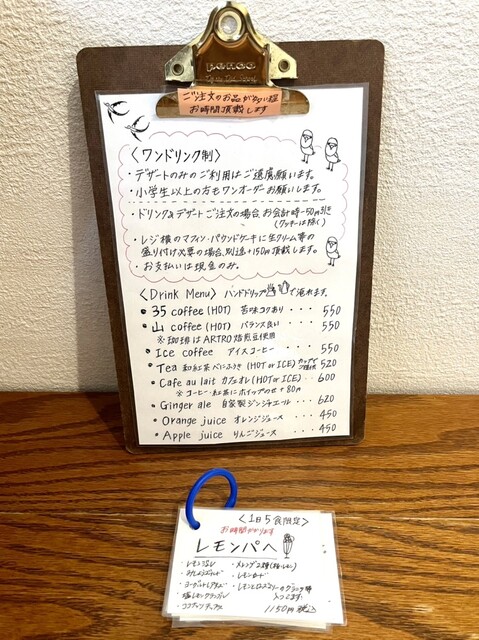 ご注文のお品が分い程
お時間頂戴します
〈ワンドリンク制〉
・デザートのみのご利用はご遠慮願います。
・小学生以上の方もワンオーダーお願いします。
・ドリンク&デザートご注文の場合 お会計時−50円引き
(クッキーは除く)
・レジ横のマフィン・パウンドケーキに生クリーム等の
盛り付け必要の場合、別途+150円頂戴します。
・お支払いは現金のみ。
〈Drink Menu〉ハンドドリップで淹れます。
・35 coffee (HOT) 苦味コクあり ・・・ 550
・山 coffee (HOT) バランス良い ・・・ 550
※珈琲はARTRO焙煎豆使用
・Ice coffee アイスコーヒー ・・・ 550
・Tea 和紅茶べにふうき (HOT or ICE) カップで提供 520
・Cafe au lait カフェオレ (HOT or ICE) ・・ 600
※コーヒー・紅茶にホイップのせ+80円
・Ginger ale 自家製ジンジャエール ・・・ 620
・Orange juice オレンジジュース ・・・ 450
・Apple juice りんごジュース ・・・ 450
〈1日5食限定〉
お時間かかります
レモンパへ
・レモン
・メレンゲ
・レモンカード
・レモンとローズマリーのグラニテ等
入ってます。
1150円税込